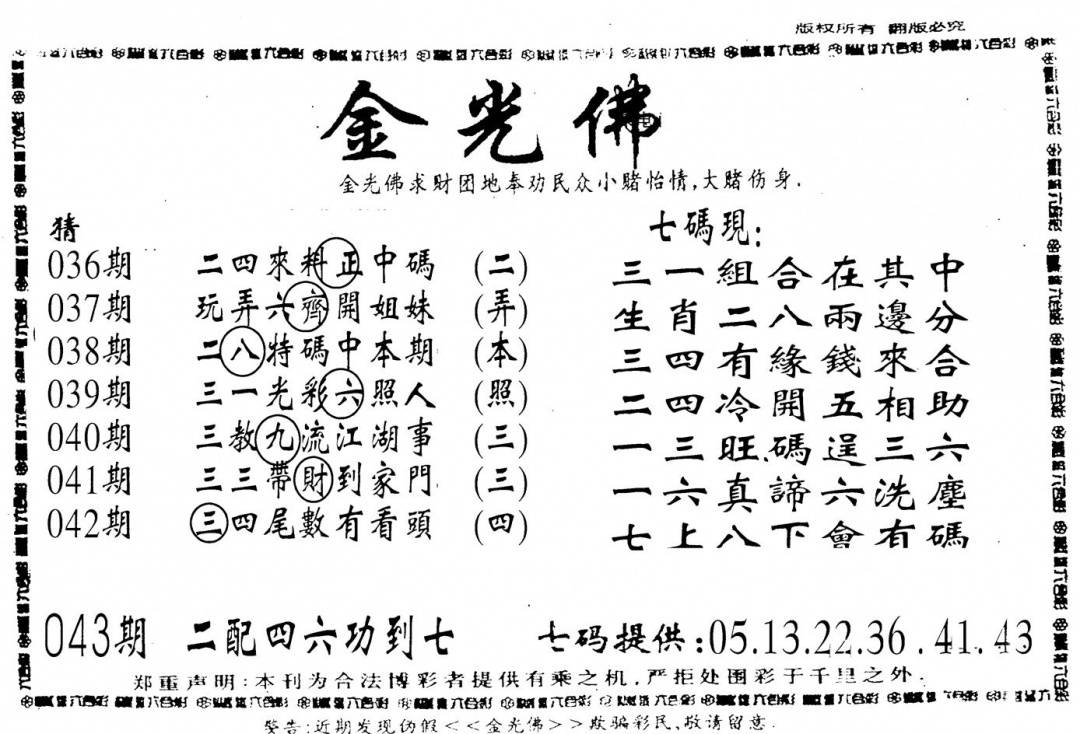 版权所有 翻版必究
金光佛
金光佛求财团地奉劝民众小赌怡情,大赌伤身.
猜
036期 二四來料正中碼 (二)
037期 玩弄六齊開姐妹 (弄)
038期 二八特碼中本期 (本)
039期 三一光彩六照人 (照)
040期 三教九流江湖事 (三)
041期 三三帶財到家門 (三)
042期 三四尾數有看頭 (四)
七碼現:
三一組合在其中
生肖二八兩邊分
三四有緣錢來合
二四冷開五相助
一三旺碼逞三六
一六真諦六洗塵
七上八下會有碼
043期 二配四六功到七 七码提供:05.13.22.36.41.43
郑重声明:本刊为合法博彩者提供有乘之机,严拒处围彩于千里之外.
警告:近期发现伪假<<金光佛>>欺骗彩民,敬请留意.